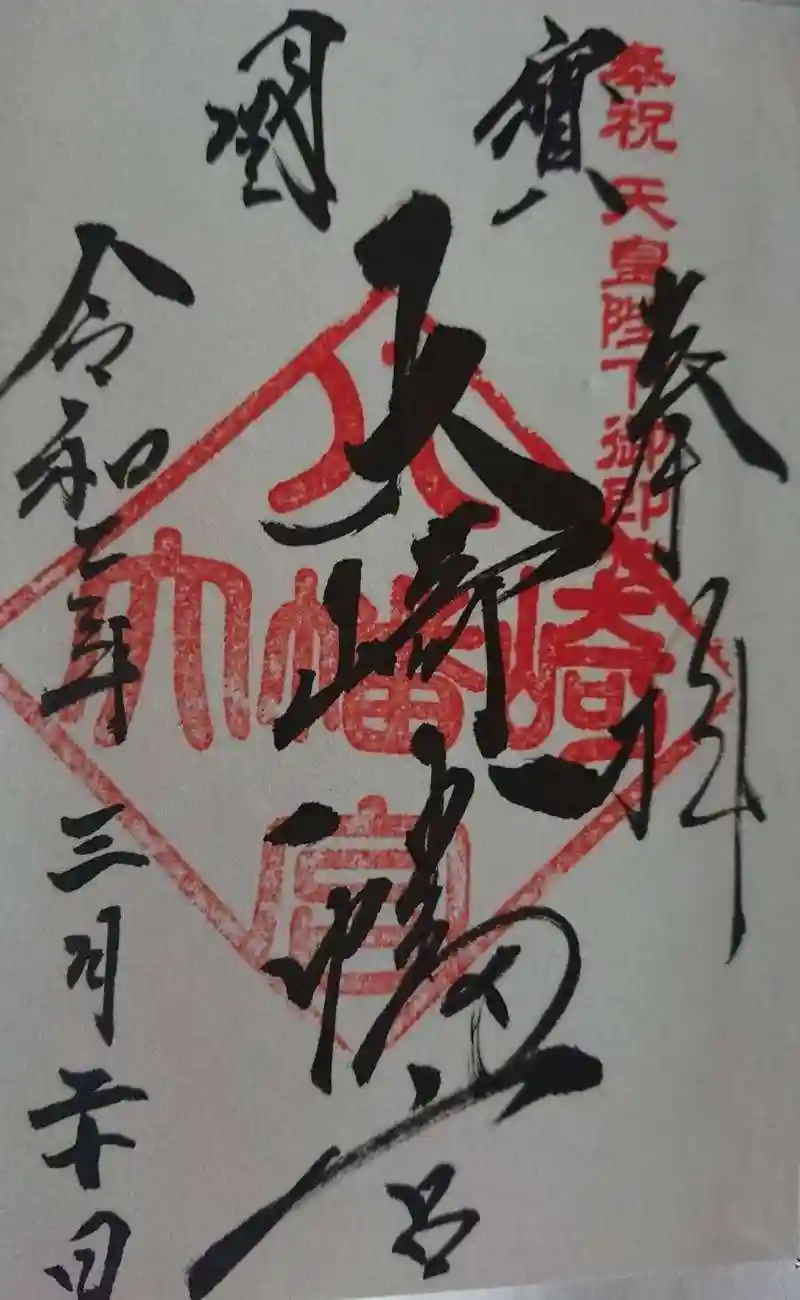 奉祝 天皇陛下御即
奉拝
國寶
大崎八幡宮
大崎八幡宮
令和二年 三月二十日